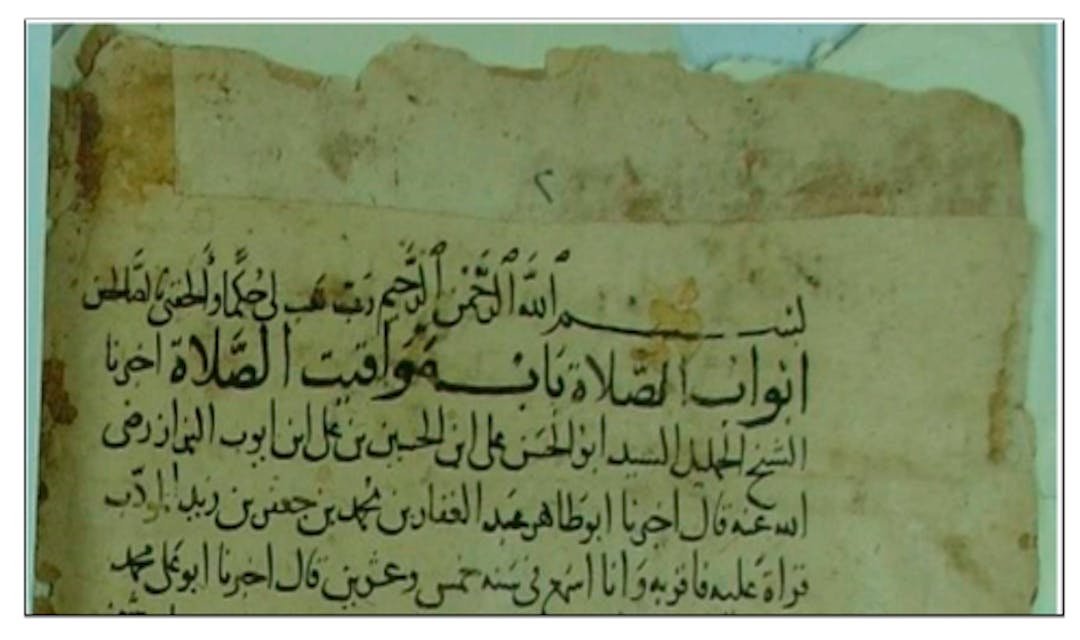 ٢
بسم الله الرحمن الرحيم رب هب لي حكما وألحقني بالصالحين
ابواب الصلاة باب مواقيت الصلاة اخبرنا
الشيخ الجليل السيد ابو الحسن علي ابن الحسين بن علي ابن ايوب البزاز رضى
الله عنه قال اخبرنا ابو طاهر عبد الغفار بن محمد بن جعفر بن زيد المؤدب
قراة عليه فاقر به وانا اسمع في سنه خمس وعشرين قال اخبرنا ابو علي محمد